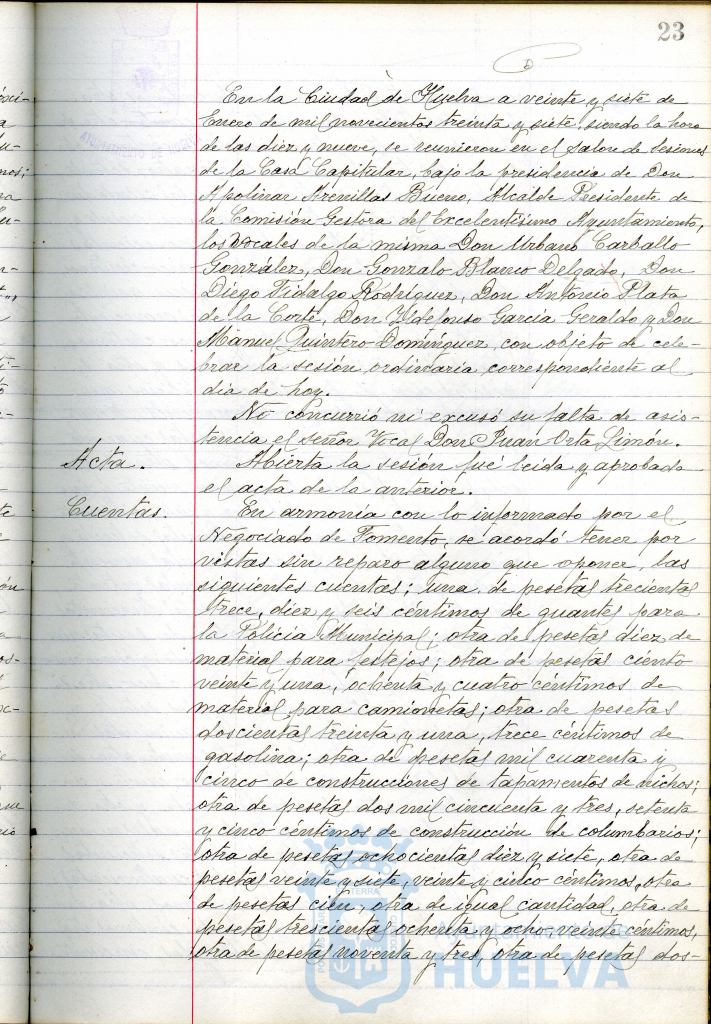 23
En la Ciudad de Huelva a veinte y siete de
Enero de mil novecientos treinta y siete, siendo la hora
de las diez y nueve, se reunieron en el Salon de Sesiones
de la Casa Capitular, bajo la presidencia de Don
Apolinar Arenillas Bueno, Alcalde Presidente de
la Comisión Gestora del Excelentisimo Ayuntamiento,
los Vocales de la misma Don Urbano Carballo
González, Don Gonzalo Blanco Delgado, Don
Diego Fidalgo Rodríguez, Don Antonio Plata
de la Corte, Don Yldefonso García Geraldo y Don
Manuel Quintero Domínguez, con objeto de cele-
brar la sesión ordinaria correspondiente al
día de hoy.
No concurrió ni excusó su falta de asis-
tencia el señor Vocal Don Juan Orta Limón.
Acta.
Abierta la sesión fué leida y aprobada
el acta de la anterior.
Cuentas.
En armonía con lo informado por el
Negociado de Fomento, se acordó tener por
vistas sin reparo alguno que oponer, las
siguientes cuentas; una de pesetas trecientas
trece, diez y seis céntimos de guantes para
la Policia Municipal; otra de pesetas diez de
material para festejos; otra de pesetas ciento
veinte y una, ochenta y cuatro céntimos de
material para camionetas; otra de pesetas
doscientas treinta y una, trece céntimos de
gasolina; otra de pesetas mil cuarenta y
cinco de construcciones de tapamentos de nichos;
otra de pesetas dos mil cincuenta y tres, setenta
y cinco céntimos de construcción de columbarios;
otra de pesetas ochocientas diez y siete, otra de
pesetas veinte y siete, veinte y cinco céntimos, otra
de pesetas cien, otra de igual cantidad, otra de
pesetas trescientas ochenta y ocho, veinte céntimos,
otra de pesetas noventa y tres, otra de pesetas dos-
HUELVA